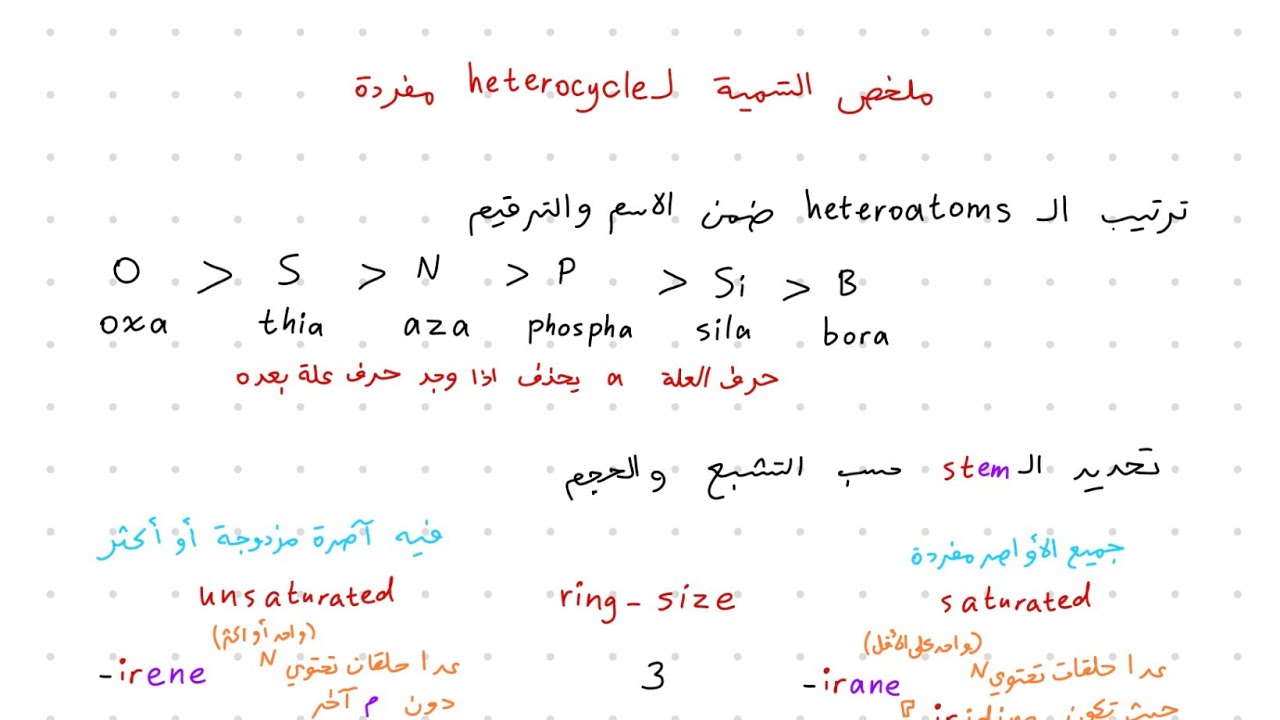 ملخص التسمية لـ heterocycle مفردة
ترتيب الـ heteroatoms ضمن الاسم والترقيم
O > S > N > P > Si > B
oxa thia aza phospha sila bora
حرف العلة a يحذف اذا وجد حرف علة بعده
تحديد الـ stem حسب التشبع والحجم
جميع الأواصر مفردة فيه آصرة مزدوجة أو أكثر
unsaturated ring-size saturated
(واحد أو اكثر) (واحد على الأقل)
-irene عدا حلقات تحتوي N 3 -irane عدا حلقات تحتوي N
دون م آخر حيث تكون